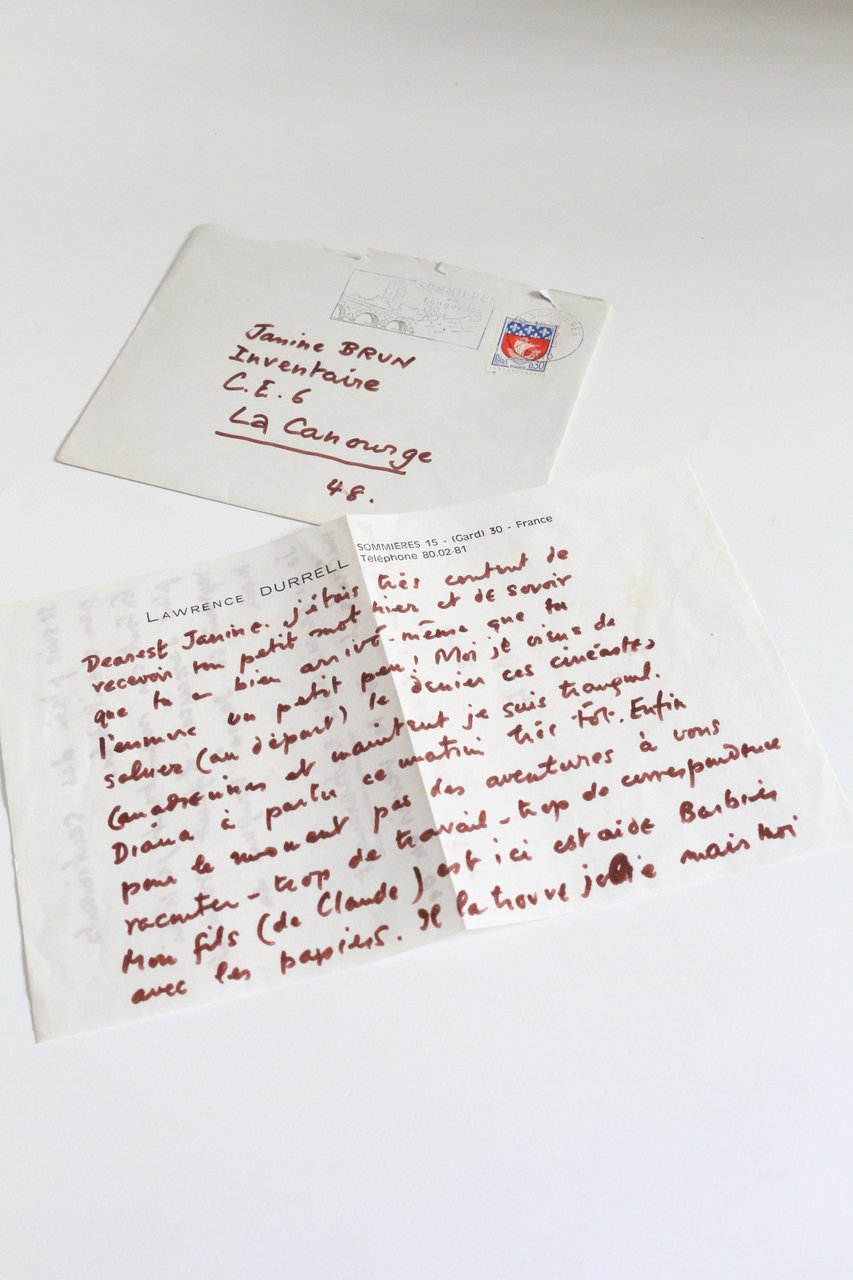 SOMMIERES
en
Languedoc
SOMMIERES
PARIS 0.30
Janine BRUN
Inventaire
C.E. 6
La Canourge
48.
LAWRENCE DURRELL
SOMMIERES 15 - (Gard) 30 - France
Téléphone 80.02.81
Dearest Janine. j'étais très content de
recevoir ton petit mot hier et de savoir
que tu a bien arrivé - même que tu
t'ennuie un petit peu! Moi je viens de
saluer (au départ) le denier ces cinéastes
Canadeinnes et maintent je suis tranquil.
Diana à partie ce matin très tôt. Enfin
pour le moment pas des aventures à vous
raconter - trop de travail - trop de correspondence
Mon fils (de Claude) est ici est aide Barbies
avec les papiers. Il la trouve jolie mais moi